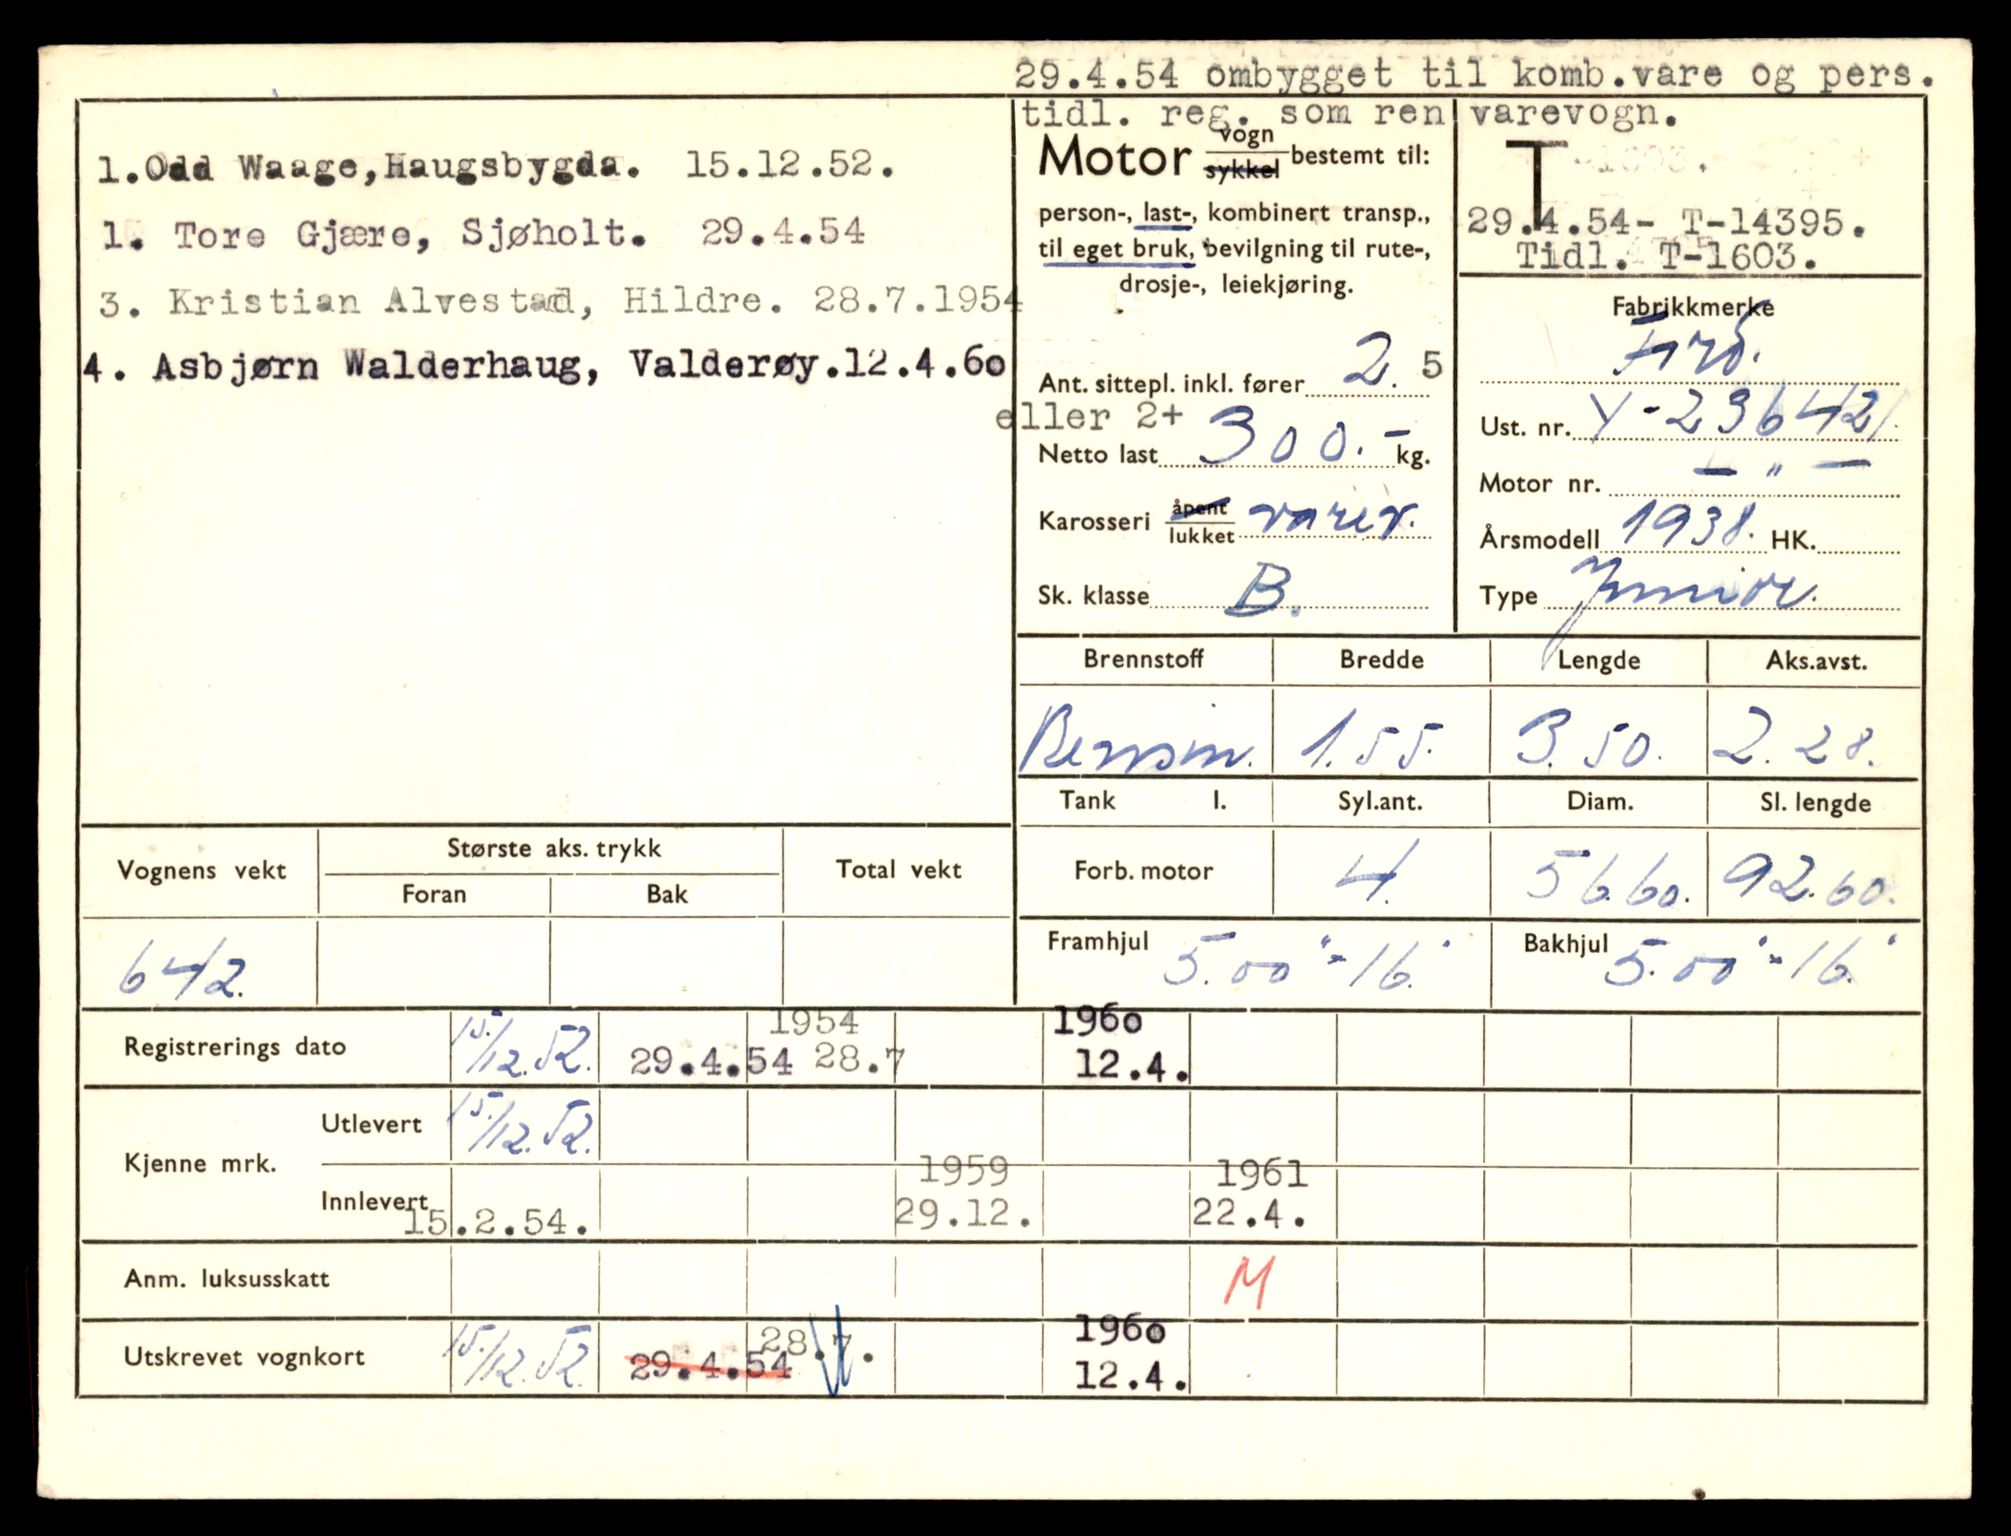 29.4.54 ombygget til komb.vare og pers.
tidl. reg. som ren varevogn.
1.Odd Waage,Haugsbygda. 15.12.52.
1. Tore Gjære, Sjøholt. 29.4.54
3. Kristian Alvestad, Hildre. 28.7.1954
4. Asbjørn Walderhaug, Valderøy.12.4.60
Motor vogn sykkel bestemt til:
person-, last-, kombinert transp.,
til eget bruk, bevilgning til rute-,
drosje-, leiekjøring.
Ant. sittepl. inkl. fører 2. 5
eller 2+
Netto last 300.- kg.
Karosseri åpent lukket varev.
Sk. klasse B.
T
29.4.54- T-14395.
Tidl. T-1603.
Fabrikkmerke
Ford.
Ust. nr. Y-236421.
Motor nr. — " —
Årsmodell 1938. HK.
Type Junior.
Brennstoff Bredde Lengde Aks.avst.
Bensin. 1.55. 3.50. 2.28.
Tank l. Syl.ant. Diam. Sl. lengde
Forb. motor 4. 56.60. 92.60.
Framhjul 5.00"-16" Bakhjul 5.00"-16"
Vognens vekt Største aks. trykk Total vekt
Foran Bak
642.
Registrerings dato 15/12.52. 29.4.54 1954 28.7 1960 12.4.
Kjenne mrk. Utlevert 15/12.52.
Innlevert 15.2.54. 1959 29.12. 1961 22.4.
Anm. luksusskatt M
Utskrevet vognkort 15/12.52. 29.4.54 28.7. 1960 12.4.